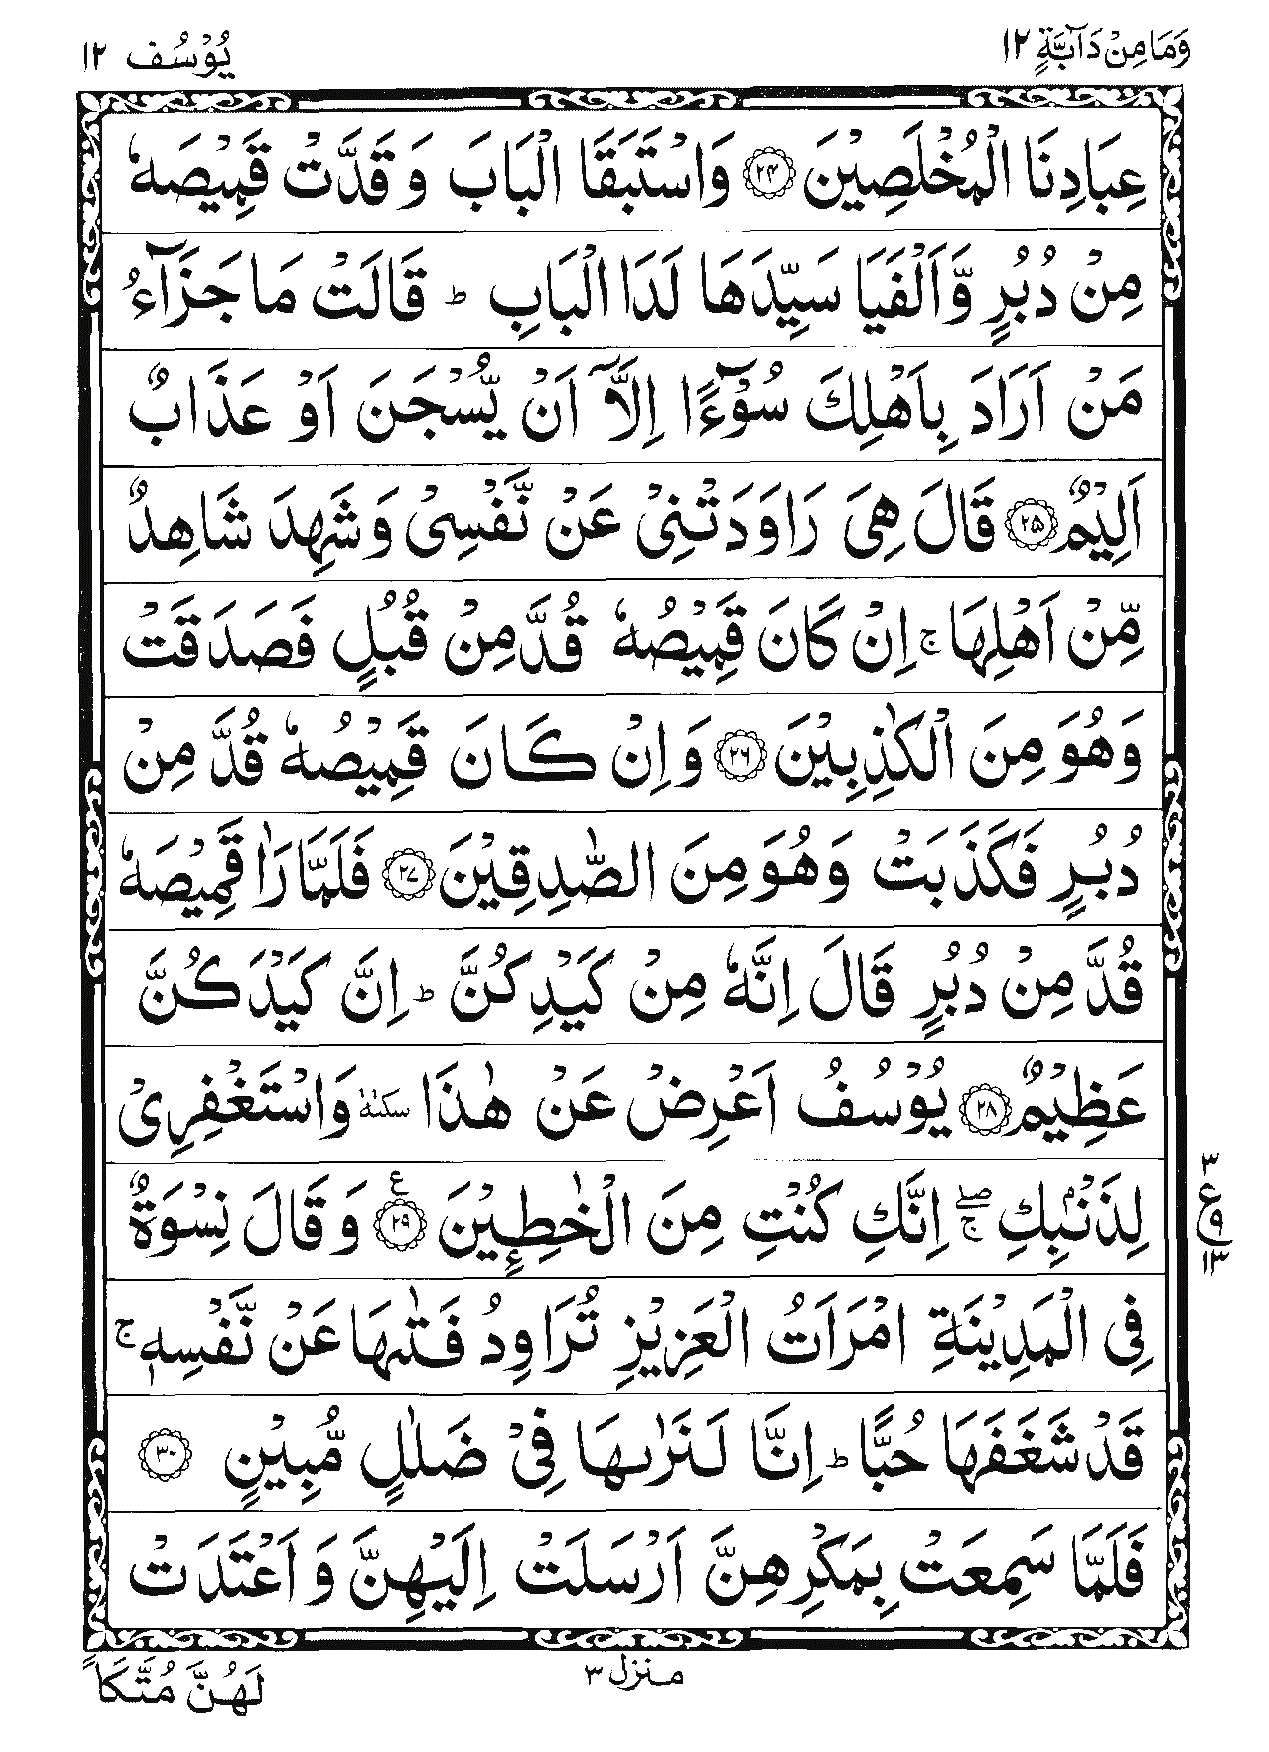 وَمَا مِنْ دَآبَّةٍ ١٢ يُوْسُف ١٢
عِبَادِنَا الْمُخْلَصِيْنَ ۝٢٤ وَاسْتَبَقَا الْبَابَ وَ قَدَّتْ قَمِيْصَهٗ
مِنْ دُبُرٍ وَّاَلْفَيَا سَيِّدَهَا لَدَا الْبَابِ ؕ قَالَتْ مَا جَزَآءُ
مَنْ اَرَادَ بِاَهْلِكَ سُوْٓءًا اِلَّاۤ اَنْ يُّسْجَنَ اَوْ عَذَابٌ
اَلِيْمٌ ۝٢٥ قَالَ هِىَ رَاوَدَتْنِىْ عَنْ نَّفْسِىْ وَ شَهِدَ شَاهِدٌ
مِّنْ اَهْلِهَا ۚ اِنْ كَانَ قَمِيْصُهٗ قُدَّ مِنْ قُبُلٍ فَصَدَقَتْ
وَهُوَ مِنَ الْكٰذِبِيْنَ ۝٢٦ وَ اِنْ كَانَ قَمِيْصُهٗ قُدَّ مِنْ
دُبُرٍ فَكَذَبَتْ وَهُوَ مِنَ الصّٰدِقِيْنَ ۝٢٧ فَلَمَّا رَاٰ قَمِيْصَهٗ
قُدَّ مِنْ دُبُرٍ قَالَ اِنَّهٗ مِنْ كَيْدِكُنَّ ؕ اِنَّ كَيْدَكُنَّ
عَظِيْمٌ ۝٢٨ يُوْسُفُ اَعْرِضْ عَنْ هٰذَا سكتة وَاسْتَغْفِرِىْ
لِذَنْۢبِكِ ۖۚ اِنَّكِ كُنْتِ مِنَ الْخٰطِـِٕيْنَ ۝٢٩ ع وَ قَالَ نِسْوَةٌ
٣ ع ٩ ١٣
فِى الْمَدِيْنَةِ امْرَاَتُ الْعَزِيْزِ تُرَاوِدُ فَتٰىهَا عَنْ نَّفْسِهٖ ۚ
قَدْ شَغَفَهَا حُبًّا ؕ اِنَّا لَنَرٰىهَا فِىْ ضَلٰلٍ مُّبِيْنٍ ۝٣٠
فَلَمَّا سَمِعَتْ بِمَكْرِهِنَّ اَرْسَلَتْ اِلَيْهِنَّ وَ اَعْتَدَتْ
منزل ٣ لَهُنَّ مُتَّكَاً